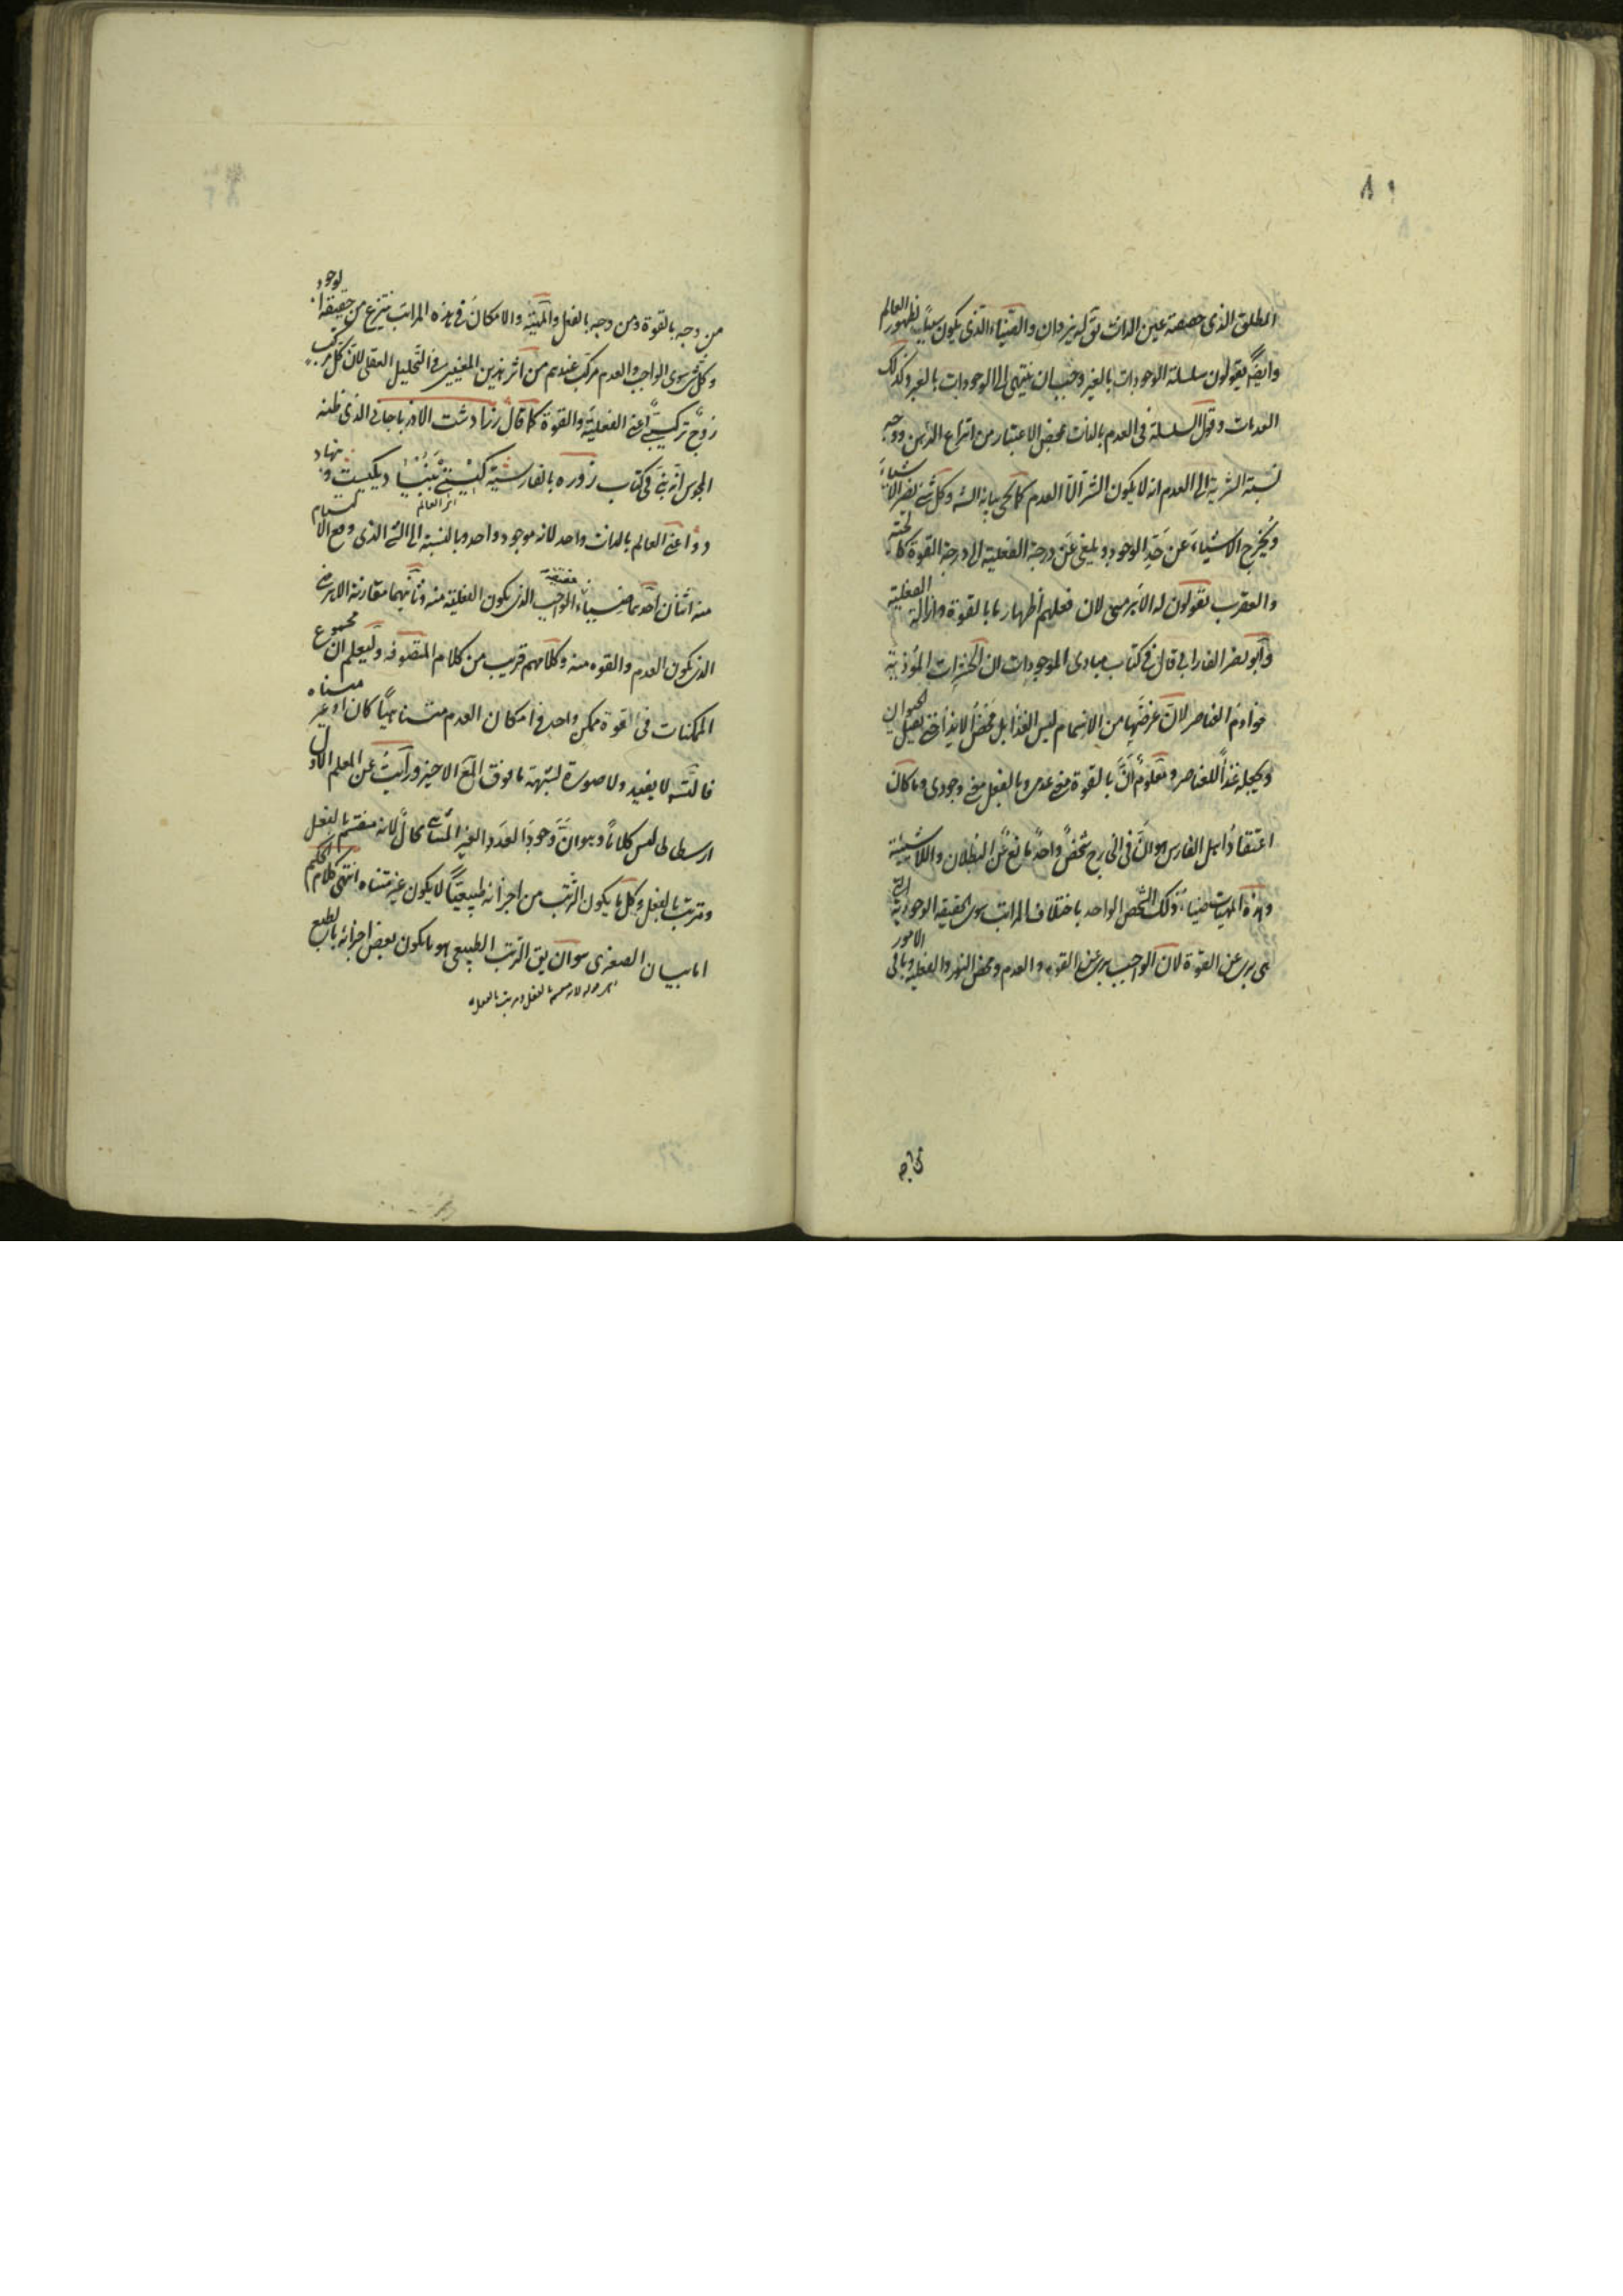 ٨١
المطلق الذى حقيقة عين الذات يق له يزدان والضياء الذى يكون سبباً لظهور العالم
وايضاً يقولون سلسلة الوجودات بالغير وجب ان ينتهى الى الوجودات بالغير وكذلك
العدمات وقول السلسلة فى العدم بالذات محض الاعتبار من انتزاع الذهن ووجه
نسبة الشرية الى العدم انه لا يكون الشر الا العدم كما يجى بيانه انشه وكل شئ يضر الاشياء
ويخرج الاشياء عن حد الوجود ويلغى عن درجة الفعلية الى درجة القوة كالحية
والعقرب يقولون له الاهرمنى لان فعلهم اظهار ما بالقوة وازالة الفعلية
وابو نصر الفارابى قال فى كتاب مبادى الموجودات ان الحشرات الموذية
خوادم العناصر لان غرضها من الانضمام ليس الغذا بل محض الايذا حتى يقتل الحيوان
ويجعله غذاً للعناصر ومعلوم ان بالقوة معنى عدمى وبالفعل معنى وجودى وما كان
اعتقاد اهل الفارس هو ان فى الخارج شخص واحد مانع عن البطلان واللاشيئية
وهذه المهيات ضياء ذلك الشخص الواحد باختلاف المراتب سوى الحقيقة الوجودية التى
هى برى عن القوة لان الواجب برى عن القوة والعدم ومحض النور والفعلية وباقى الامور
من وجه بالقوة ومن وجه بالفعل والمهية والامكان فى هذه المراتب ينتزع من حقيقة الوجود
وكل شئ سوى الواجب والعدم مركب عندهم من اثر هذين المعنيين فى التحليل العقلى لان كل مركب
زوج تركيبى اعنى الفعلية والقوة كما قال زرادشت الاذربايجانى الذى ظنه
المجوس انه نبى فى كتاب زوره بالفارسية گيتى بنيا ديكيست و نهاد
اثر العالم
دو اعنى العالم بالذات واحد لانه موجود واحد وبالنسبة الى الشئ الذى وقع الاقسام
منه اثنان احدهما ضياء الواجب الذى يكون الفعلية منه وثانيهما مقارنة الاهرمن
الذى يكون العدم والقوه منه وكلامهم قريب من كلام المتصوفه وليعلم ان مجموع
الممكنات فى القوة ممكن واحد فى امكان العدم متناهياً كان او غير متناه
فالتشه لا يفيد ولا صورة لشبهة ما فوق المع الاخير ورايت عن المعلم الاول
ارسطاطاليس كلاماً وهو ان وجود العدد الغير المتناهى محال لانه منقسم بالفعل
ومترتب بالفعل وكل ما يكون الترتب من اجزائه طبيعياً لا يكون غير متناه انتهى كلام الحكيم
اما بيان الصغرى هو ان يق الترتب الطبيعى هو ما يكون بعض اجزائه بالطبع